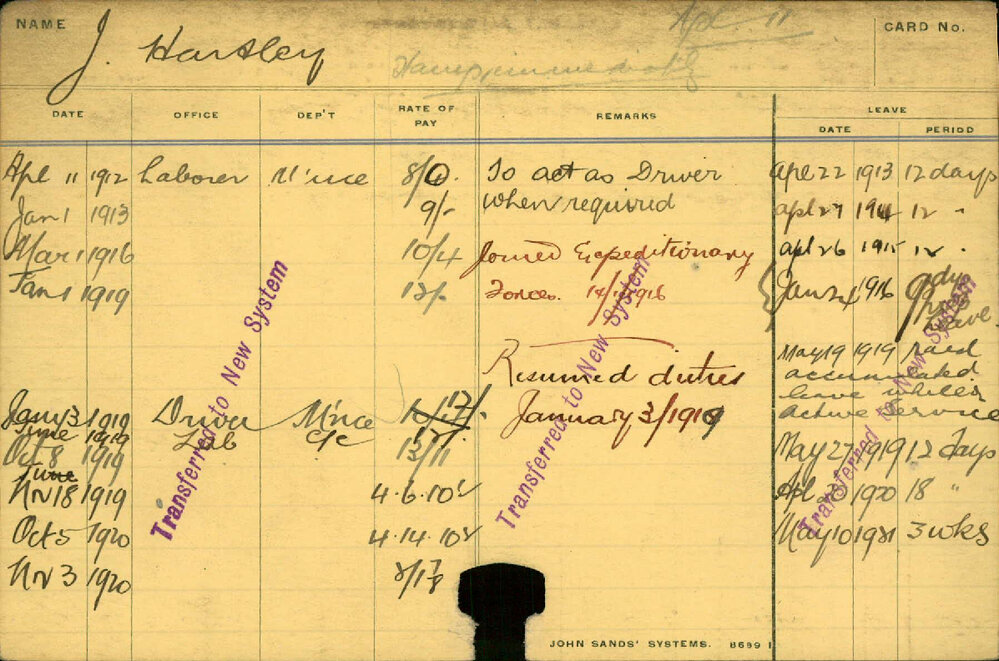 NAME J. Hartley CARD No.
Apl. 11
DATE OFFICE DEP'T RATE OF PAY REMARKS LEAVE
DATE PERIOD
Apl 11 1912 Laborer M'nce 8/6. To act as Driver Apl 22 1913 12 days
Jan 1 1913 9/- when required apl 27 1914 12 "
Mar 1 1916 10/4 Joined Expeditionary apl 26 1915 12 "
Jan 1 1919 12/- Forces. 1916 Jan 24 1916
leave
Resumed duties May 19 1919 Paid
accumulated
leave whilst
Jany 3 1919 Driver M'nce January 3/1919 active service
June 1919 Lab C/c
Oct 8 1919 13/11 May 27 1919 12 days
June
Nv 18 1919 4.6.10½ Apl 1920 18 "
Oct 5 1920 4.14.10½ May 10 1921 3 wks
Nv 3 1920
Transferred to New System
Transferred to New System
Transferred to New System
JOHN SANDS' SYSTEMS. 8699